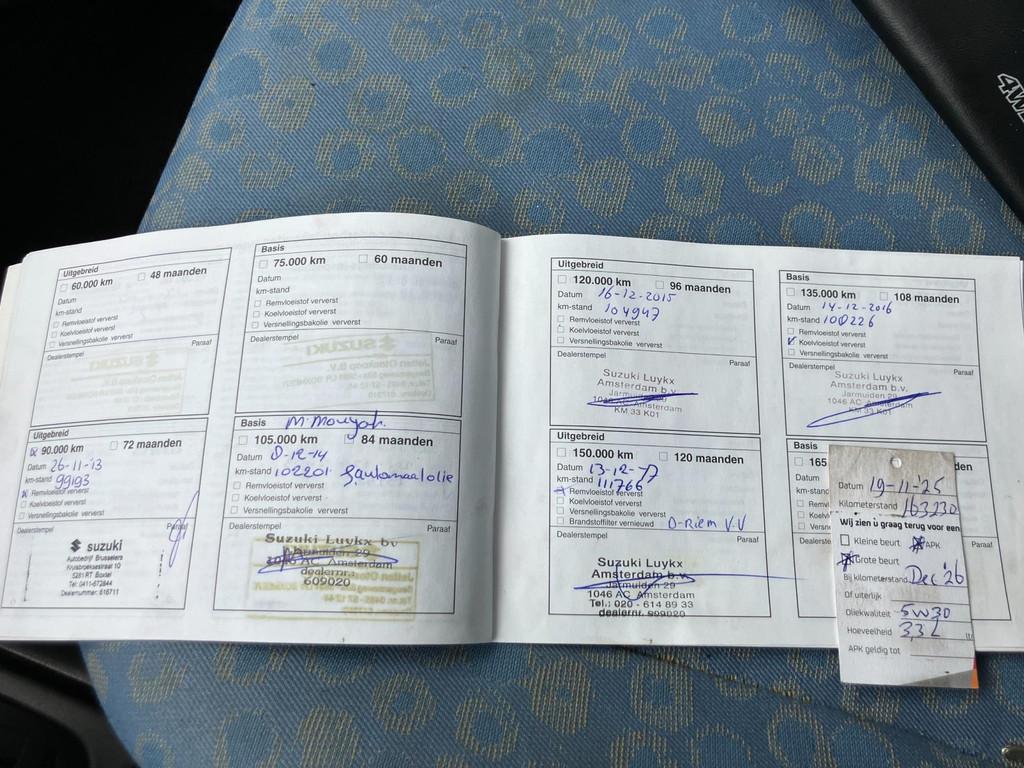 4WD
Uitgebreid
☐ 60.000 km ☐ 48 maanden
Datum
km-stand
☐ Remvloeistof ververst
☐ Koelvloeistof ververst
☐ Versnellingsbakolie ververst
Dealerstempel Paraaf
Basis
☐ 75.000 km ☐ 60 maanden
Datum
km-stand
☐ Remvloeistof ververst
☐ Koelvloeistof ververst
☐ Versnellingsbakolie ververst
Dealerstempel Paraaf
SUZUKI
Uitgebreid
☒ 90.000 km ☐ 72 maanden
Datum 26-11-'13
km-stand 99193
☒ Remvloeistof ververst
☐ Koelvloeistof ververst
☐ Versnellingsbakolie ververst
Dealerstempel Paraaf
SUZUKI
Autobedrijf Brusselers
Kruisbroeksestraat 10
5281 RT Boxtel
Tel: 0411-672844
Dealernummer: 616711
Basis
☐ 105.000 km 84 maanden
Datum 8-12-14
km-stand 102201
☐ Remvloeistof ververst
☐ Koelvloeistof ververst
☐ Versnellingsbakolie ververst
Dealerstempel Paraaf
Suzuki Luykx bv
Jarmuiden 29
1046 AC Amsterdam
dealernr.
609020
Uitgebreid
☐ 120.000 km ☐ 96 maanden
Datum 16-12-2015
km-stand 104947
☐ Remvloeistof ververst
☐ Koelvloeistof ververst
☐ Versnellingsbakolie ververst
Dealerstempel Paraaf
Suzuki Luykx
Amsterdam b.v.
Jarmuiden 29
1046 AC Amsterdam
KM 33 K01
Basis
☐ 135.000 km ☐ 108 maanden
Datum 14-12-2016
km-stand 108226
☐ Remvloeistof ververst
☑ Koelvloeistof ververst
☐ Versnellingsbakolie ververst
Dealerstempel Paraaf
Suzuki Luykx
Amsterdam b.v.
Jarmuiden 29
1046 AC Amsterdam
KM 33 K01
Uitgebreid
☐ 150.000 km ☐ 120 maanden
Datum 13-12-17
km-stand 111766
Remvloeistof ververst
☐ Koelvloeistof ververst
☐ Versnellingsbakolie ververst
☐ Brandstoffilter vernieuwd D-Riem V.V
Dealerstempel Paraaf
Suzuki Luykx
Amsterdam b.v.
Jarmuiden 29
1046 AC Amsterdam
Tel.: 020 - 614 89 33
dealernr. 609020
Basis
☐ 165 den
Datum
km-stand
☐ Remv
☐ Koelv
☐ Versn
Dealerste Paraaf
Datum 19-11-25
Kilometerstand 163230
Wij zien u graag terug voor een
☐ Kleine beurt ☒ APK
☒ Grote beurt
Bij kilometerstand Dec '26
Of uiterlijk
Oliekwaliteit 5w30
Hoeveelheid 33L ltr
APK geldig tot